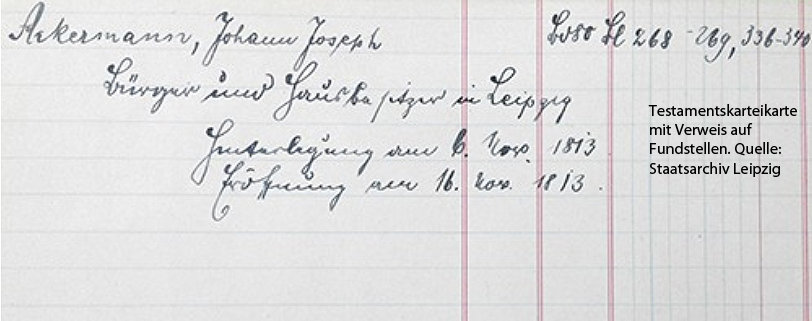 Ackermann, Johann Joseph
Bd 80 Bl 268-269, 336-340
Bürger und Hausbesitzer in Leipzig
Hinterlegung am 6. Nov. 1813
Eröffnung am 16. Nov. 1813.
Testamentskarteikarte
mit Verweis auf
Fundstellen. Quelle:
Staatsarchiv Leipzig